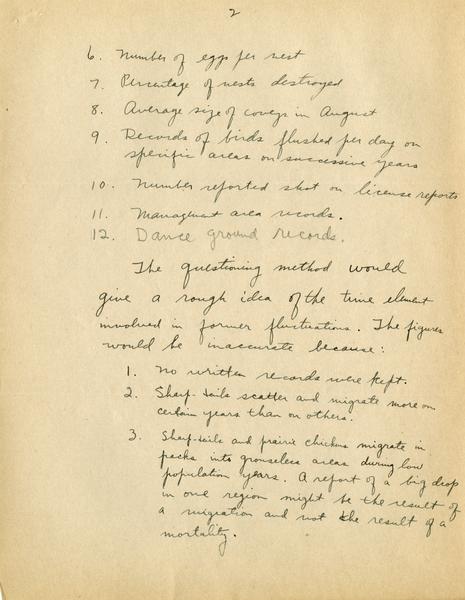 2
6. Number of eggs per nest
7. Percentage of nests destroyed
8. Average size of coveys in August
9. Records of birds flushed per day on
specific areas on successive years
10. Number reported shot on license reports
11. Management area records.
12. Dance ground records.
The questioning method would
give a rough idea of the time element
involved in former fluctuations. The figures
would be inaccurate because:
1. No written records were kept.
2. Sharp-tails scatter and migrate more on
certain years than on others.
3. Sharp-tails and prairie chickens migrate in
packs into grouseless areas during low
population years. A report of a big drop
in one region might be the result of
a migration and not the result of a
mortality.